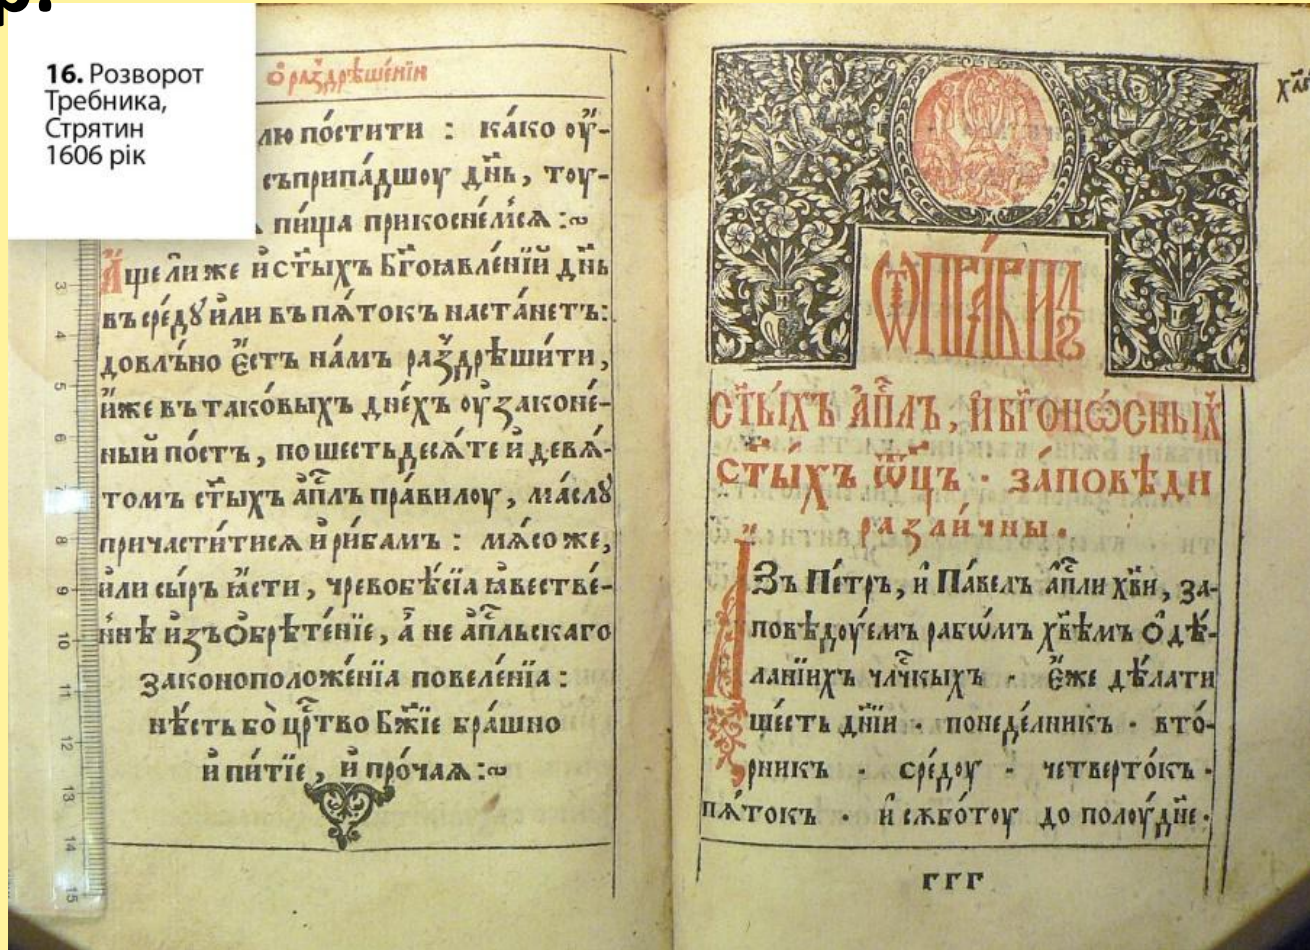 р.
16. Розворот
Требника,
Стрятин
1606 рік
ѻ раздрѣшенїи
лю по́стити : ка́ко оу҆-
съприпа́дшоу дн҃ь, тоу-
пи́ща прикосне́мсѧ :~
А҆ще ли же и҆ ст҃ыхъ Бг҃оꙗвле́нїй дн҃ь
въ сре́дꙋ и҆ли въ пѧ́токъ наста́нетъ:
довлѣ́но є҆стъ на́мъ раздрѣши́ти,
и҆же въ тако́выхъ дне́хъ оу҆законе́-
ный по́стъ, по шестьдесѧ́те и҆ девѧ́-
томъ ст҃ыхъ а҆п҃лъ пра́вилоу, ма́слꙋ
причасти́тисѧ и҆ ри́бамъ : мѧ́со же,
и҆ли сы́ръ ꙗ҆́сти, чревобѣ́сїа ꙗ҆вестве́-
ннѣ и҆зъѻбрѣте́нїе, а҆ не а҆п҃льскаго
законоположе́нїа повеле́нїа :
нѣ́сть бо̀ цр҃тво Бж҃їе бра́шно
и҆ пи́тїе, и҆ про́чаѧ :~
Ѿ пра́вилъ
ст҃ы́хъ а҆п҃лъ, и҆ бг҃оно́сныхъ
ст҃ы́хъ ѿц҃ъ · за́повѣди
разли́чны.
А҆Зъ Пе́тръ, и҆ Па́велъ а҆п҃ли хв҃и, за-
повѣ́доуемъ рабѡ́мъ хв҃ѣмъ ѻ҆ дѣ́-
ланїихъ чл҃чкыхъ · Е҆́же дѣ́лати
ше́сть дн҃їи · понеде́лникъ · вто́-
рникъ · сре́доу · четверто́къ ·
пѧ́токъ · и҆ сѫбо́тоу до полоу́дне ·
ггг